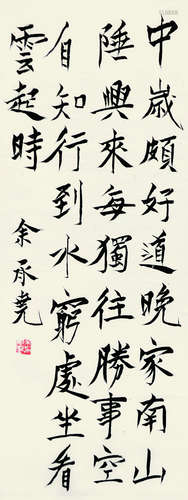 中歲頗好道晚家南山
陲興來每獨往勝事空
自知行到水窮處坐看
雲起時
余承堯